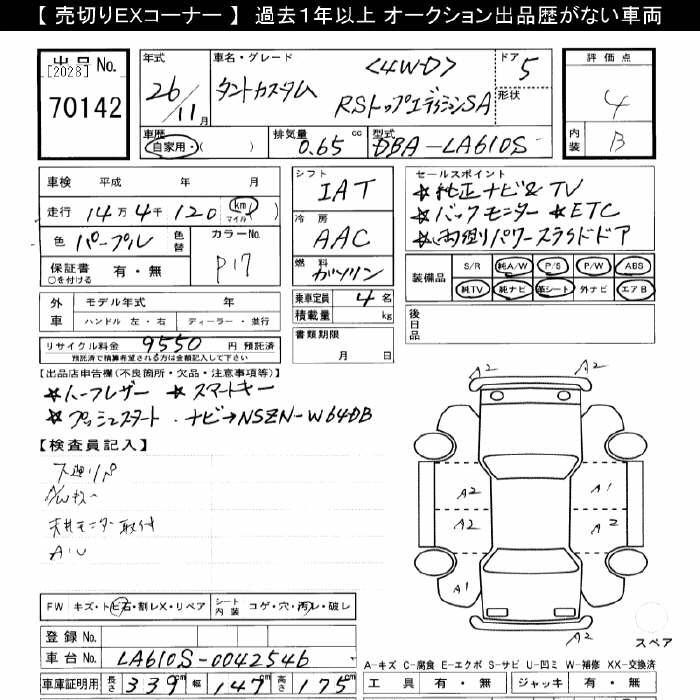 【 売切りEXコーナー 】 過去1年以上 オークション出品歴がない車両
出品No.
[2028]
70142
年式
26/11月
車名・グレード
タントカスタム
<4WD>
RSトップエディションSA
ドア
5
形状
評価点
4
内装
B
車歴
自家用・( )
排気量
0.65 cc
型式
DBA-LA610S
車検 平成 年 月
走行 14万4千120 (km マイル)
色 パープル 色替
カラーNo.
P17
保証書 有・無
○を付ける
外車 モデル年式 年
ハンドル 左・右 ディーラー・並行
リサイクル料金 9550 円 預託済
預託済で精算希望される方は金額記入して下さい
シフト
IAT
冷房
AAC
燃料
ガソリン
乗車定員 4 名
積載量 kg
書類期限
月 日
セールスポイント
★純正ナビ&TV
★バックモニター ★ETC
★両側パワースライドドア
装備品
S/R 純A/W P/S P/W ABS
純TV 純ナビ 革シート 外ナビ エアB
後日品
【出品店申告欄(不良箇所・欠品・注意事項等)】
★ハーフレザー ★スマートキー
★プッシュスタート ・ナビ→NSZN-W64DB
【検査員記入】
下廻りパ
A/Wキズ
天井モニター取付
A・U
FW キズ・トビ石・割レX・リペア シート内装 コゲ・穴・汚レ・破レ
登録No.
車台No. LA610S-0042546
車庫証明用 長さ 339cm 幅 147cm 高さ 175cm
A2
A2
A2
A2
A1
A2
A1
A2
スペア
A-キズ C-腐食 E-エクボ S-サビ U-凹ミ W-補修 XX-交換済
工具 有・無 ジャッキ 有・無